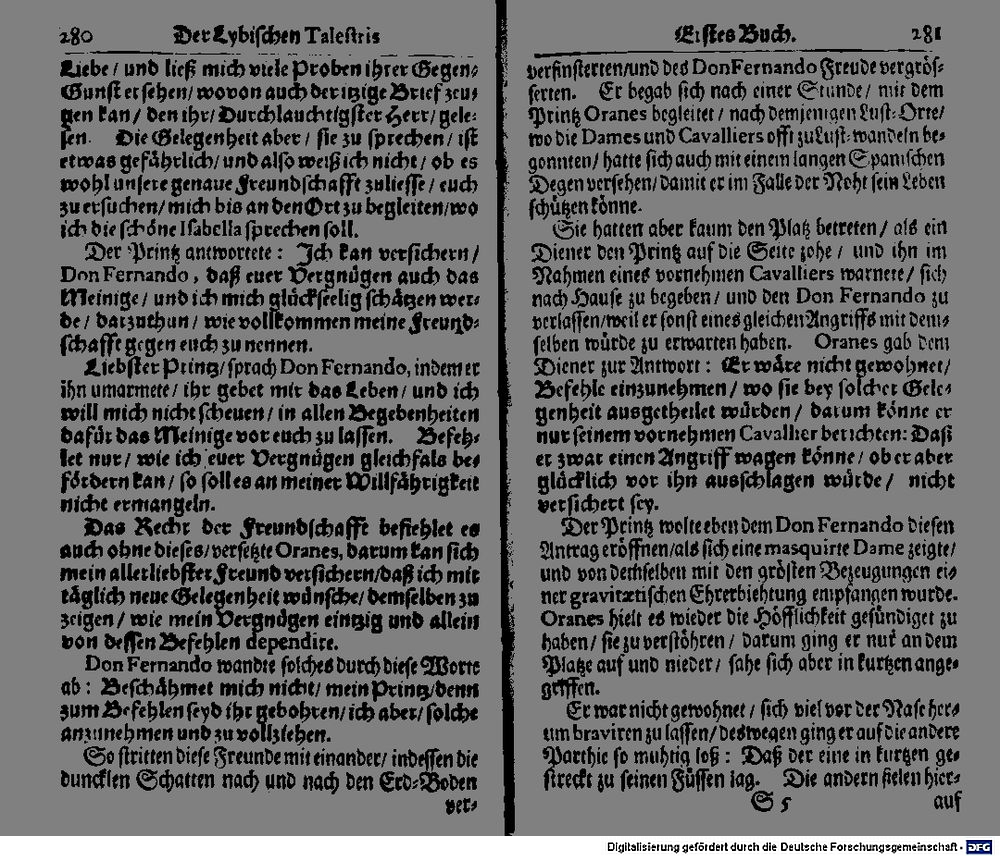 280 Der Lybischen Talestris
Liebe / und ließ mich viele Proben ihrer Gegen-
Gunst ersehen / wovon auch der itzige Brief zeu-
gen kan / den ihr / Durchlauchtigster Herr / gele-
sen. Die Gelegenheit aber / sie zu sprechen / ist
etwas gefährlich / und also weiß ich nicht / ob es
wohl unsere genaue Freundschafft zuliesse / euch
zu ersuchen / mich bis an den Ort zu begleiten / wo
ich die schöne Isabella sprechen soll.
Der Printz antwortete: Ich kan versichern /
Don Fernando, daß euer Vergnügen auch das
Meinige / und ich mich glückseelig schätzen wer-
de / darzuthun / wie vollkommen meine Freund-
schafft gegen euch zu nennen.
Liebster Printz / sprach Don Fernando, indem er
ihn umarmete / ihr gebet mir das Leben / und ich
will mich nicht scheuen / in allen Begebenheiten
dafür das Meinige vor euch zu lassen. Befeh-
let nur / wie ich euer Vergnügen gleichfals be-
fördern kan / so soll es an meiner Willfährigkeit
nicht ermangeln.
Das Recht der Freundschafft befiehlet es
auch ohne dieses / versetzte Oranes, darum kan sich
mein allerliebster Freund versichern / daß ich mir
täglich neue Gelegenheit wünsche / demselben zu
zeigen / wie mein Vergnügen eintzig und allein
von dessen Befehlen dependire.
Don Fernando wandte solches durch diese Worte
ab: Beschähmet mich nicht / mein Printz / denn
zum Befehlen seyd ihr gebohren / ich aber / solche
anzunehmen und zu vollziehen.
So stritten diese Freunde mit einander / indessen die
duncklen Schatten nach und nach den Erd-Boden
ver-
Erstes Buch. 281
verfinsterten / und des Don Fernando Freude vergrös-
serten. Er begab sich nach einer Stunde / mit dem
Printz Oranes begleitet / nach demjenigen Lust-Orte /
wo die Dames und Cavalliers offt zu Lust-wandeln be-
gonnten / hatte sich auch mit einem langen Spanischen
Degen versehen / damit er im Falle der Noht sein Leben
schützen könne.
Sie hatten aber kaum den Platz betreten / als ein
Diener den Printz auf die Seite zohe / und ihn im
Nahmen eines vornehmen Cavalliers warnete / sich
nach Hause zu begeben / und den Don Fernando zu
verlassen / weil er sonst eines gleichen Angriffs mit dem-
selben würde zu erwarten haben. Oranes gab dem
Diener zur Antwort: Er wäre nicht gewohnet /
Befehle einzunehmen / wo sie bey solcher Gele-
genheit ausgetheilet würden / darum könne er
nur seinem vornehmen Cavallier berichten: Daß
er zwar einen Angriff wagen könne / ob er aber
glücklich vor ihn ausschlagen würde / nicht
versichert sey.
Der Printz wolte eben dem Don Fernando diesen
Antrag eröffnen / als sich eine masquirte Dame zeigte /
und von demselben mit den grösten Bezeugungen ei-
ner gravitætischen Ehrerbiehtung empfangen wurde.
Oranes hielt es wieder die Höfflichkeit gesündiget zu
haben / sie zu verstöhren / darum ging er nur an dem
Platze auf und nieder / sahe sich aber in kurtzen ange-
griffen.
Er war nicht gewohnet / sich viel vor der Nase her-
um braviren zu lassen / deswegen ging er auf die andere
Parthie so muhtig loß: Daß der eine in kurtzen ge-
streckt zu seinen Füssen lag. Die andern fielen hier-
S 5 auf
Digitalisierung gefördert durch die Deutsche Forschungsgemeinschaft - DFG